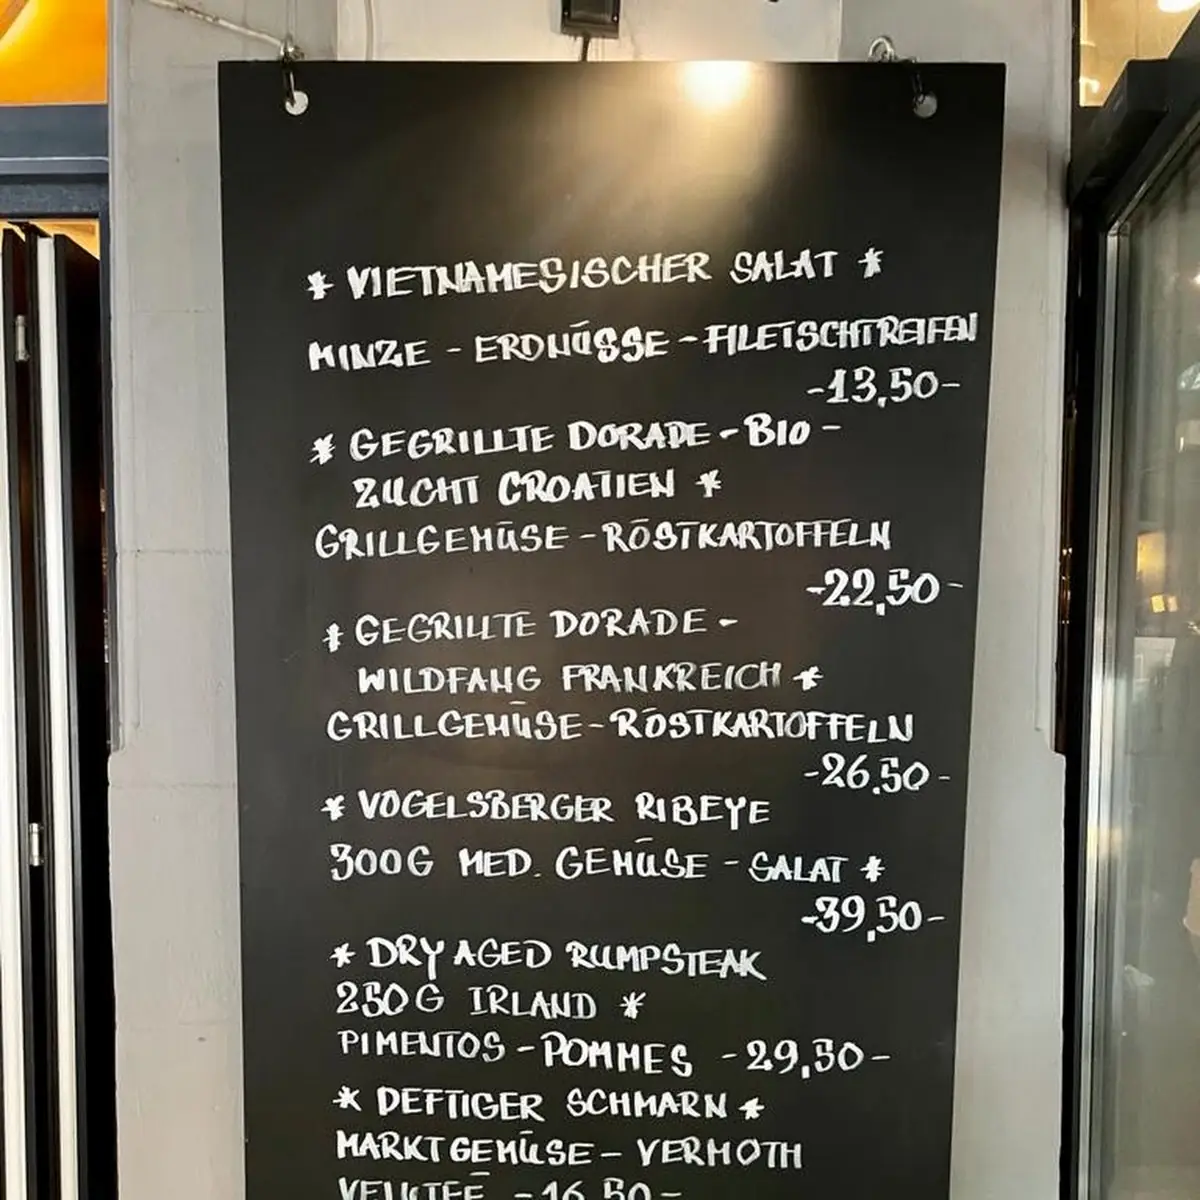 * VIETNAMESISCHER SALAT *
MINZE - ERDNÜSSE - FILETSCHTREIFEN
-13,50-
* GEGRILLTE DORADE - BIO -
ZUCHT CROATIEN *
GRILLGEMÜSE - RÖSTKARTOFFELN
-22,50-
* GEGRILLTE DORADE -
WILDFANG FRANKREICH *
GRILLGEMÜSE - RÖSTKARTOFFELN
-26,50-
* VOGELSBERGER RIBEYE
300G MED. GEMÜSE - SALAT *
-39,50-
* DRY AGED RUMPSTEAK
250G IRLAND *
PIMENTOS - POMMES -29,50-
* DEFTIGER SCHMARN *
MARKTGEMÜSE - VERMOTH
VELUTEE -16,50-